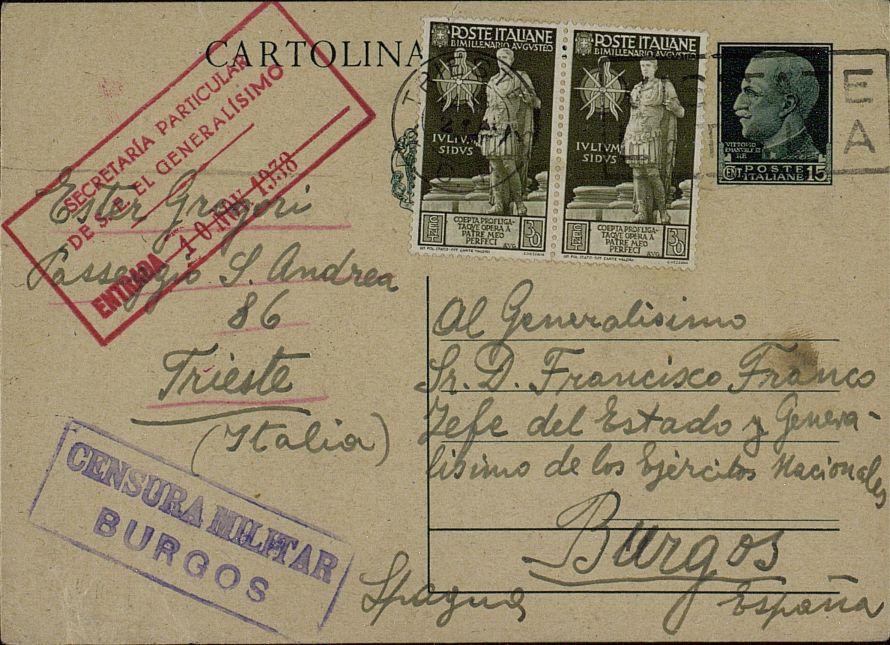 CARTOLINA
POSTE ITALIANE
BIMILLENARIO AVGVSTEO
IVLIVM
SIDVS
COEPTA PROFLIGA-
TAQVE OPERA A
PATRE MEO
PERFECI
AVG.
CENT.
30
POSTE ITALIANE
BIMILLENARIO AVGVSTEO
IVLIVM
SIDVS
COEPTA PROFLIGA-
TAQVE OPERA A
PATRE MEO
PERFECI
AVG.
CENT.
30
VITTORIO
EMANUELE III
RE
CENT. POSTE ITALIANE 15
SECRETARÍA PARTICULAR
DE S. E. EL GENERALÍSIMO
ENTRADA 10 1938
Ester Gregori
Passeggio S. Andrea
86
Trieste
(Italia)
CENSURA MILITAR
BURGOS
Al Generalisimo
Sr. D. Francisco Franco
Jefe del Estado y Genera-
lisimo de los Ejércitos Nacionales
Burgos
Spagna España